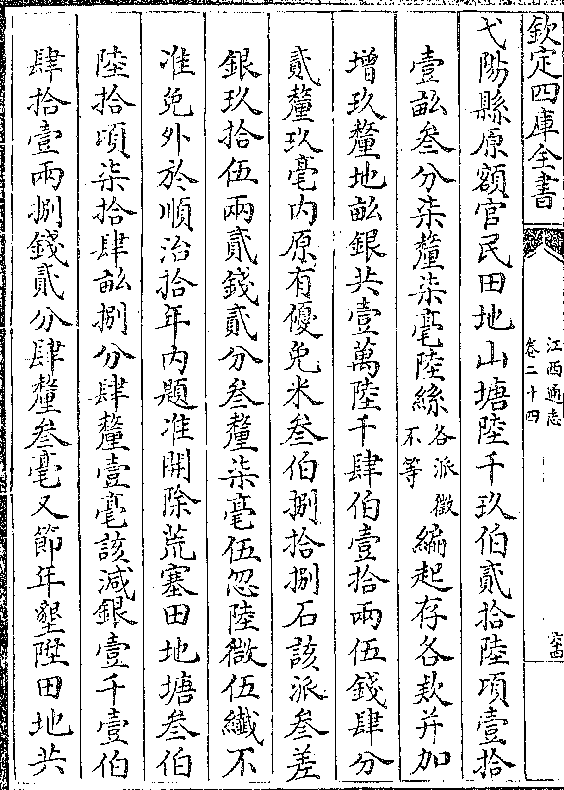 欽定四庫全書
江西通志
卷二十四
弋陽縣原額官民田地山塘陸千玖伯貳拾陸項壹拾
壹畝叁分柒釐柒毫陸絲各派徵不等編起存各款并加
增玖釐地畝銀共壹萬陸千肆伯壹拾兩伍錢肆分
貳釐玖毫内原有優免米叁伯捌拾捌石該派叁差
銀玖拾伍兩貳錢貳分叁釐柒毫伍忽陸微伍纖不
准免外於順治拾年内題准開除荒塞田地塘叁伯
陸拾項柒拾肆畝捌分肆釐壹毫該減銀壹千壹伯
肆拾壹兩捌錢貳分肆釐叁毫又節年墾陞田地共